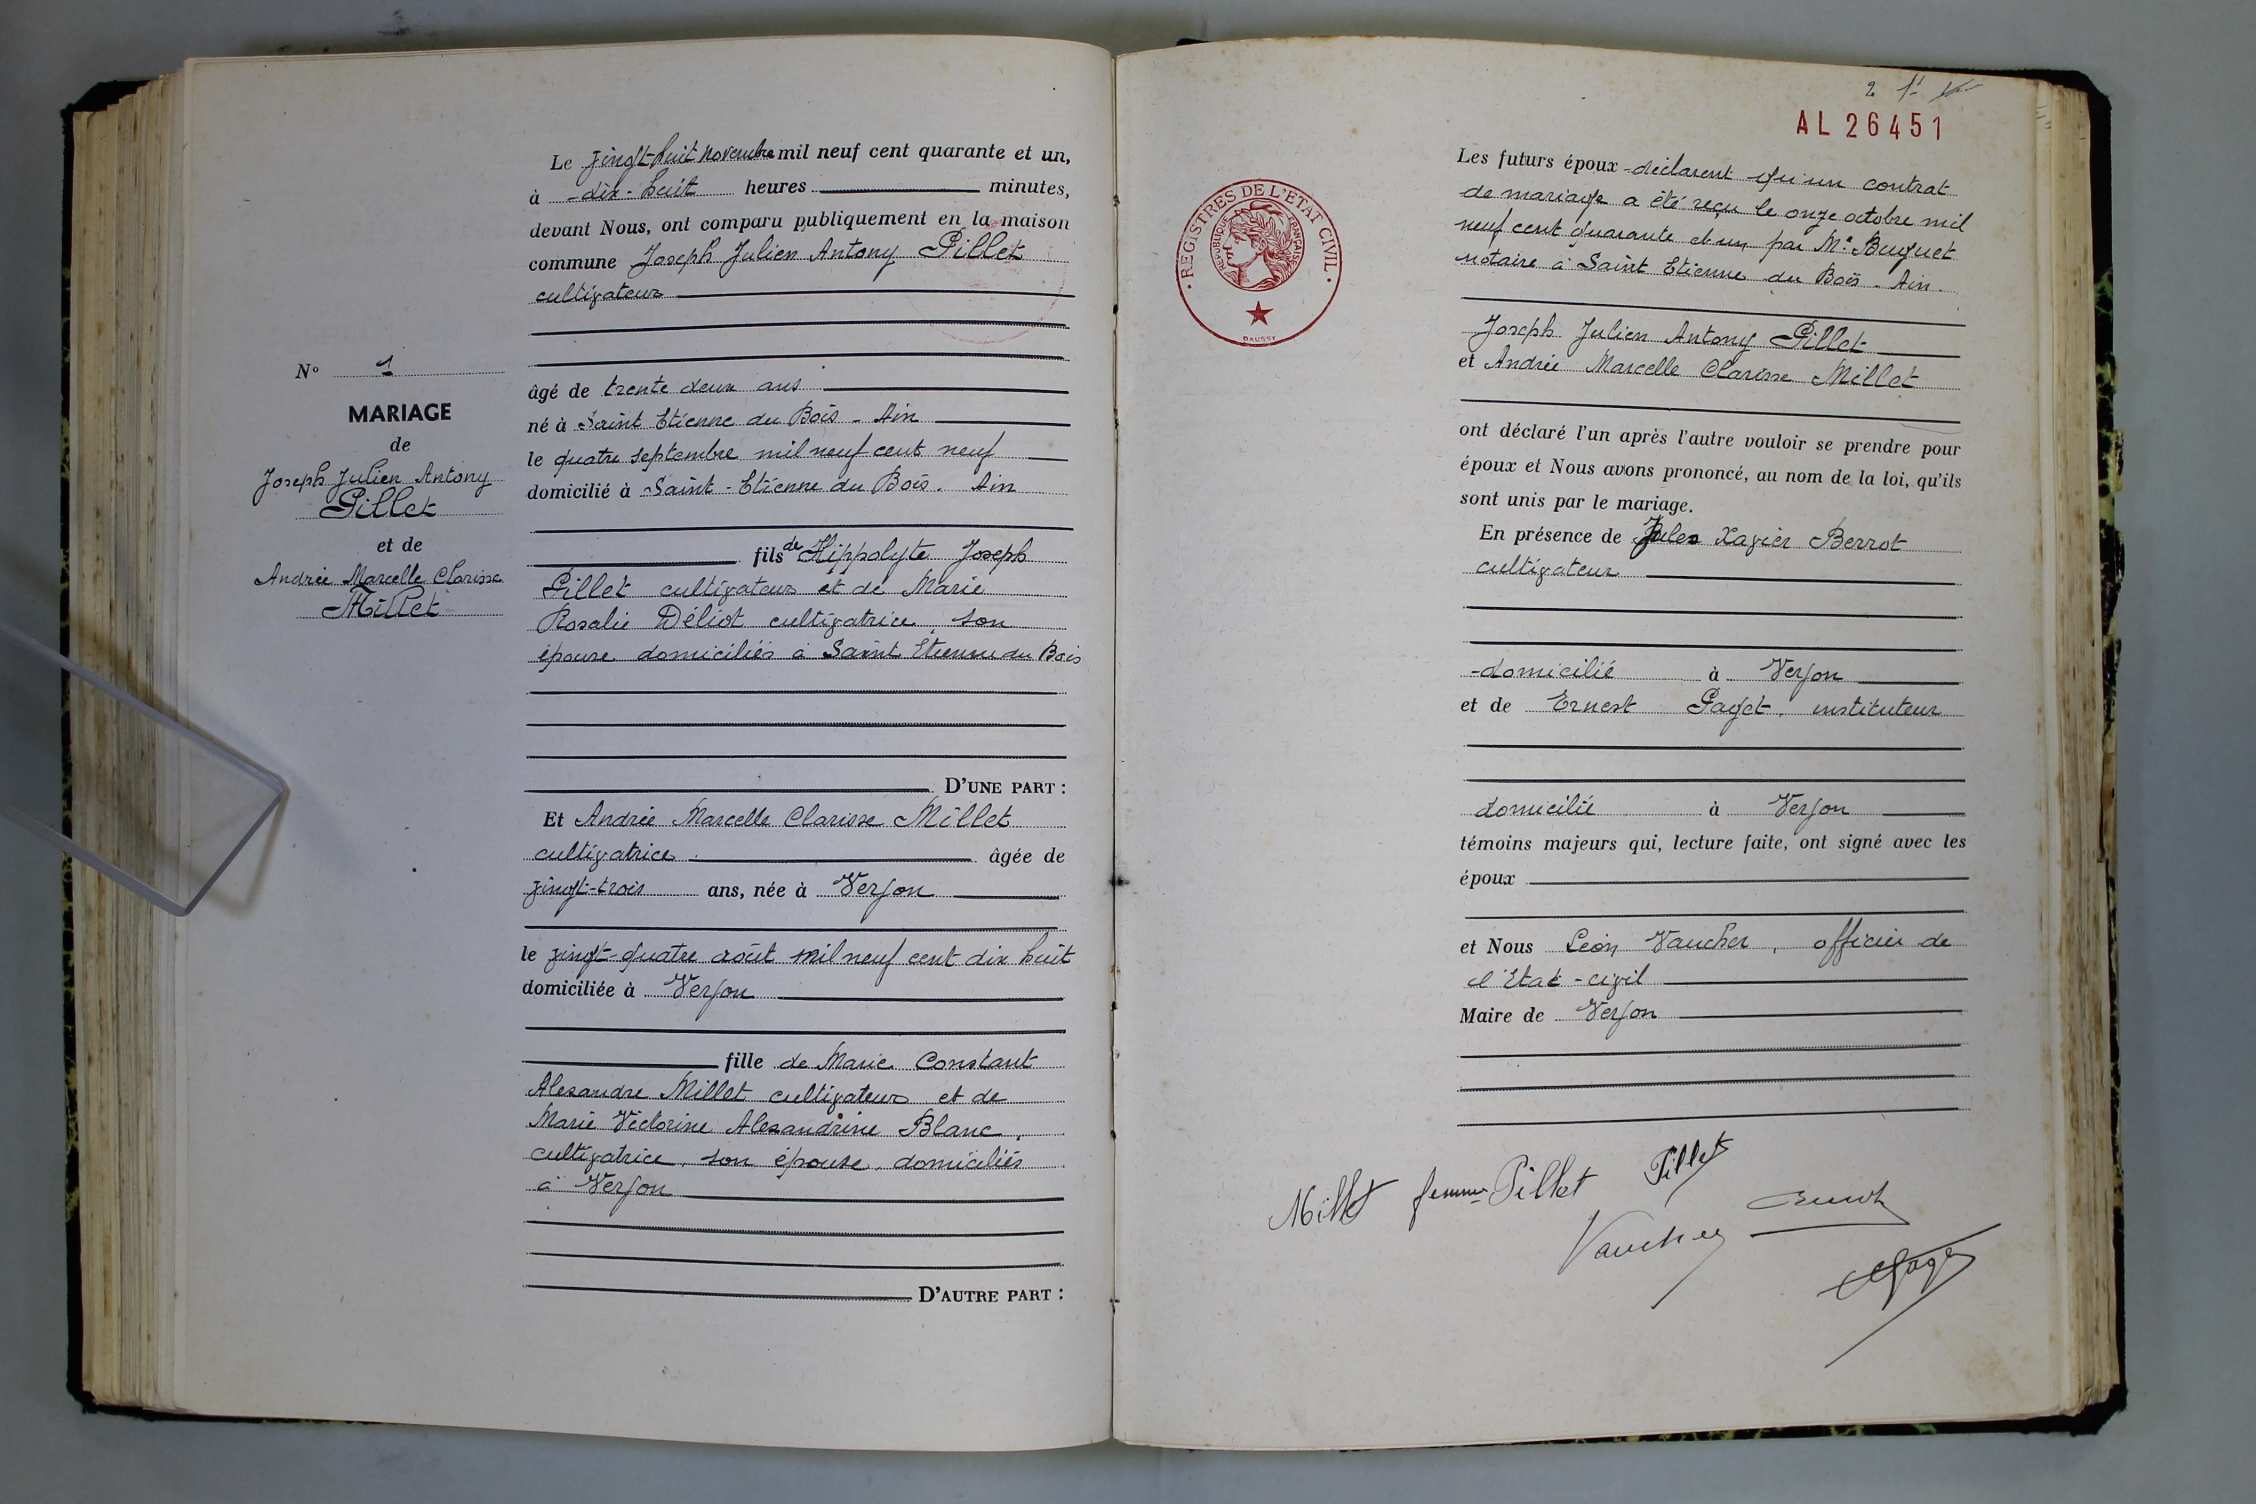 N° 1
MARIAGE
de
Joseph Julien Antony
Pillet
et de
Andrée Marcelle Clarisse
Millet
Le vingt-huit novembre mil neuf cent quarante et un,
à dix-huit heures minutes,
devant Nous, ont comparu publiquement en la maison
commune Joseph Julien Antony Pillet
cultivateur
âgé de trente deux ans
né à Saint Etienne du Bois - Ain
le quatre septembre mil neuf cent neuf
domicilié à Saint-Etienne du Bois. Ain
fils de Hippolyte Joseph
Pillet cultivateur et de Marie
Rosalie Déliot cultivatrice, son
épouse domiciliés à Saint Etienne du Bois
D'UNE PART :
Et Andrée Marcelle Clarisse Millet
cultivatrice âgée de
vingt-trois ans, née à Verjon
le vingt-quatre août mil neuf cent dix huit
domiciliée à Verjon
fille de Marie Constant
Alexandre Millet cultivateur et de
Marie Victorine Alexandrine Blanc,
cultivatrice, son épouse, domiciliés
à Verjon
D'AUTRE PART :
2
AL 26451
REGISTRES DE L'ÉTAT CIVIL
RÉPUBLIQUE FRANÇAISE
DAUSSY
Les futurs époux déclarent qu'un contrat
de mariage a été reçu le onze octobre mil
neuf cent quarante et un par Me Buguet
notaire à Saint Etienne du Bois - Ain.
Joseph Julien Antony Pillet
et Andrée Marcelle Clarisse Millet
ont déclaré l'un après l'autre vouloir se prendre pour
époux et Nous avons prononcé, au nom de la loi, qu'ils
sont unis par le mariage.
En présence de Jules Xavier Berrot
cultivateur
domicilié à Verjon
et de Ernest Paget, instituteur
domicilié à Verjon
témoins majeurs qui, lecture faite, ont signé avec les
époux
et Nous Léon Vaucher, officier de
l'Etat-civil
Maire de Verjon
Millet femme Pillet Pillet
Vaucher